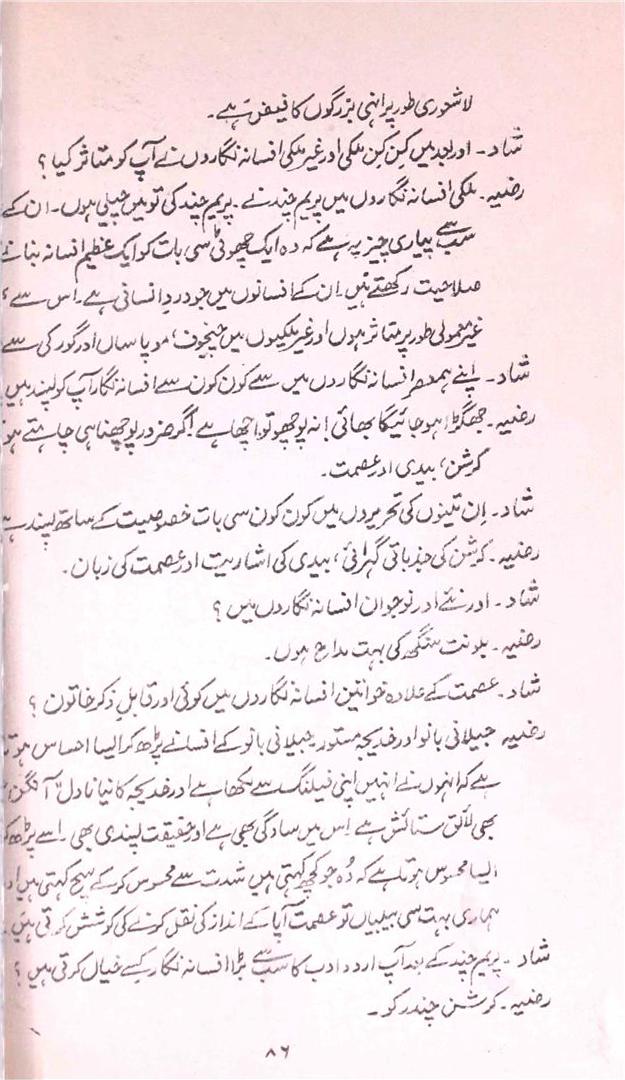 لاشعوری طور پر انہی بزرگوں کا فیض ہے۔
شاد۔ اور بعد میں کن کن ملکی اور غیر ملکی افسانہ نگاروں نے آپ کو متاثر کیا؟
رضیہ۔ ملکی افسانہ نگاروں میں پریم چند نے۔ پریم چند کی تو میں چیلی ہوں۔ ان کے
سب سے پیاری چیز یہ ہے کہ وہ ایک چھوٹی سی بات کو ایک عظیم افسانہ بنانے
صلاحیت رکھتے ہیں۔ ان کے افسانوں میں جو دردِ انسانی ہے۔ اس سے
غیر معمولی طور پر متاثر ہوں اور غیر ملکیوں میں چیخوف، موپاساں اور گورکی سے
شاد۔ اپنے ہمعصر افسانہ نگاروں میں سے کون کون سے افسانہ نگار آپ کو پسند ہیں
رضیہ۔ جھگڑا ہو جائیگا بھائی! نہ پوچھو تو اچھا ہے اگر ضرور پوچھنا ہی چاہتے ہو
کرشن، بیدی اور عصمت۔
شاد۔ اِن تینوں کی تحریروں میں کون کون سی بات خصوصیت کے ساتھ پسند ہے
رضیہ۔ کرشن کی جذباتی گہرائی، بیدی کی اشاریت اور عصمت کی زبان۔
شاد۔ اور نئے اور نوجوان افسانہ نگاروں میں؟
رضیہ۔ بلونت سنگھ کی بہت مداح ہوں۔
شاد۔ عصمت کے علاوہ خواتین افسانہ نگاروں میں کوئی اور قابلِ ذکر خاتون؟
رضیہ جیلانی بانو اور خدیجہ مستور۔ جیلانی بانو کے افسانے پڑھ کر ایسا احساس ہوتا
ہے کہ انہوں نے انہیں اپنی فیلنگ سے لکھا ہے اور خدیجہ کا نیا ناول "آنگن
بھی لائق ستائش ہے اس میں سادگی بھی ہے اور حقیقت پسندی بھی۔ اسے پڑھ کر
ایسا محسوس ہوتا ہے کہ وُہ جو کچھ کہتی ہیں شدت سے محسوس کر کے سچ کہتی ہیں اور
ہماری بہت سی بیبیاں تو عصمت آپا کے انداز کی نقل کرنے کی کوشش کرتی ہیں۔
شاد۔ پریم چند کے بعد آپ اردو ادب کا سب سے بڑا افسانہ نگار کسے خیال کرتی ہیں؟
رضیہ۔ کرشن چندر کو۔
۸۶